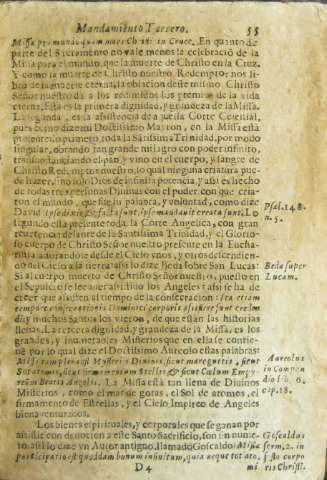 Mandamiento Tercero. 55
Missa pro mundo quam mors Christi in Cruce. En quanto de
parte del Sacramento no vale menos la celebració de la
Missa para el mundo, que la muerte de Christo en la Cruz.
Y como la muerte de Christo nuestro Redemptor nos li-
bró de la muerte eterna, la oblacion deste mismo Christo
Señor nuestro dá a los redimidos los premios de la vida
eterna. Esta es la primera dignidad, y grandeza de la Missa.
La segunda, es la assistencia de a la Corte Celestial,
pues como dize mi Doctissimo Mayron, en la Missa està
presente lo primero toda la Sãtissima Trinidad, por modo
singular, obrando tan grande milagro con poder infinito,
transustanciando el pan, y vino en el cuerpo, y sangre de
Christo Redemptor nuestro, lo qual ninguna criatura pue-
de hazer, sino solo Dios de infinita potencia, y assi es hecho
de todas tres personas Divinas con el poder con que cria-
ron el mundo, que fue su palabra, y voluntad, como dize
David: Ipse dixit & facta sunt, ipse mandavit & creata sunt. Lo
segundo està presente toda la Corte Angelica, con gran
reverencia delante de la Santissima Trinidad, y el Glorio-
so cuerpo de Christo Señor nuestro presente en la Eucha-
ristia adorandole desde el Cielo unos, y otros descendien-
do del Cielo a la tierra: assi lo dize Beda sobre San Lucas.
Si al cuerpo muerto de Christo Señor nuestro, puesto en
el Sepulcro se lee aver assistido los Angeles assi se ha de
creer que assisten al tiempo de la consecracion: Ita etiam
tempore consecrationis Dominici corporis assistere sunt creden-
di; y muchos Santos los vieron, de que estàn las historias
llenas. La tercera dignidad, y grandeza de la Missa, es los
grandes, y innumerables Misterios que en ella se contie-
nē por lo qual dize el Doctissimo Aureolo estas palabras:
Missa complenda Mysteriis Divinis, sicut mare guttis, sicut
Sol atomis, sicut firmamentum Stellis & sicut Cælum Empy-
reum Beatis Angelis. La Missa està tan llena de Divinos
Misterios, como el mar de gotas, el Sol de atomos, el
firmamento de Estrellas, y el Cielo Impireo de Angeles
bienaventurados.
Los bienes espirituales, y corporales que se ganan por
assistir con devocion a este Santo Sacrificio, son sin nume-
ro assi lo dize un Autor antiguo, llamado Goscaldo: Missæ
participatio est quoddam bonum infinitum, quia neque tot ato-
D 4 mi
Psal. 148.
n. 5.
Beda super
Lucam.
Aureolus
in Compen
dio lib. 6.
cap. 18.
Goscaldus
serm. 2. in
festo corpo
ris Christi.